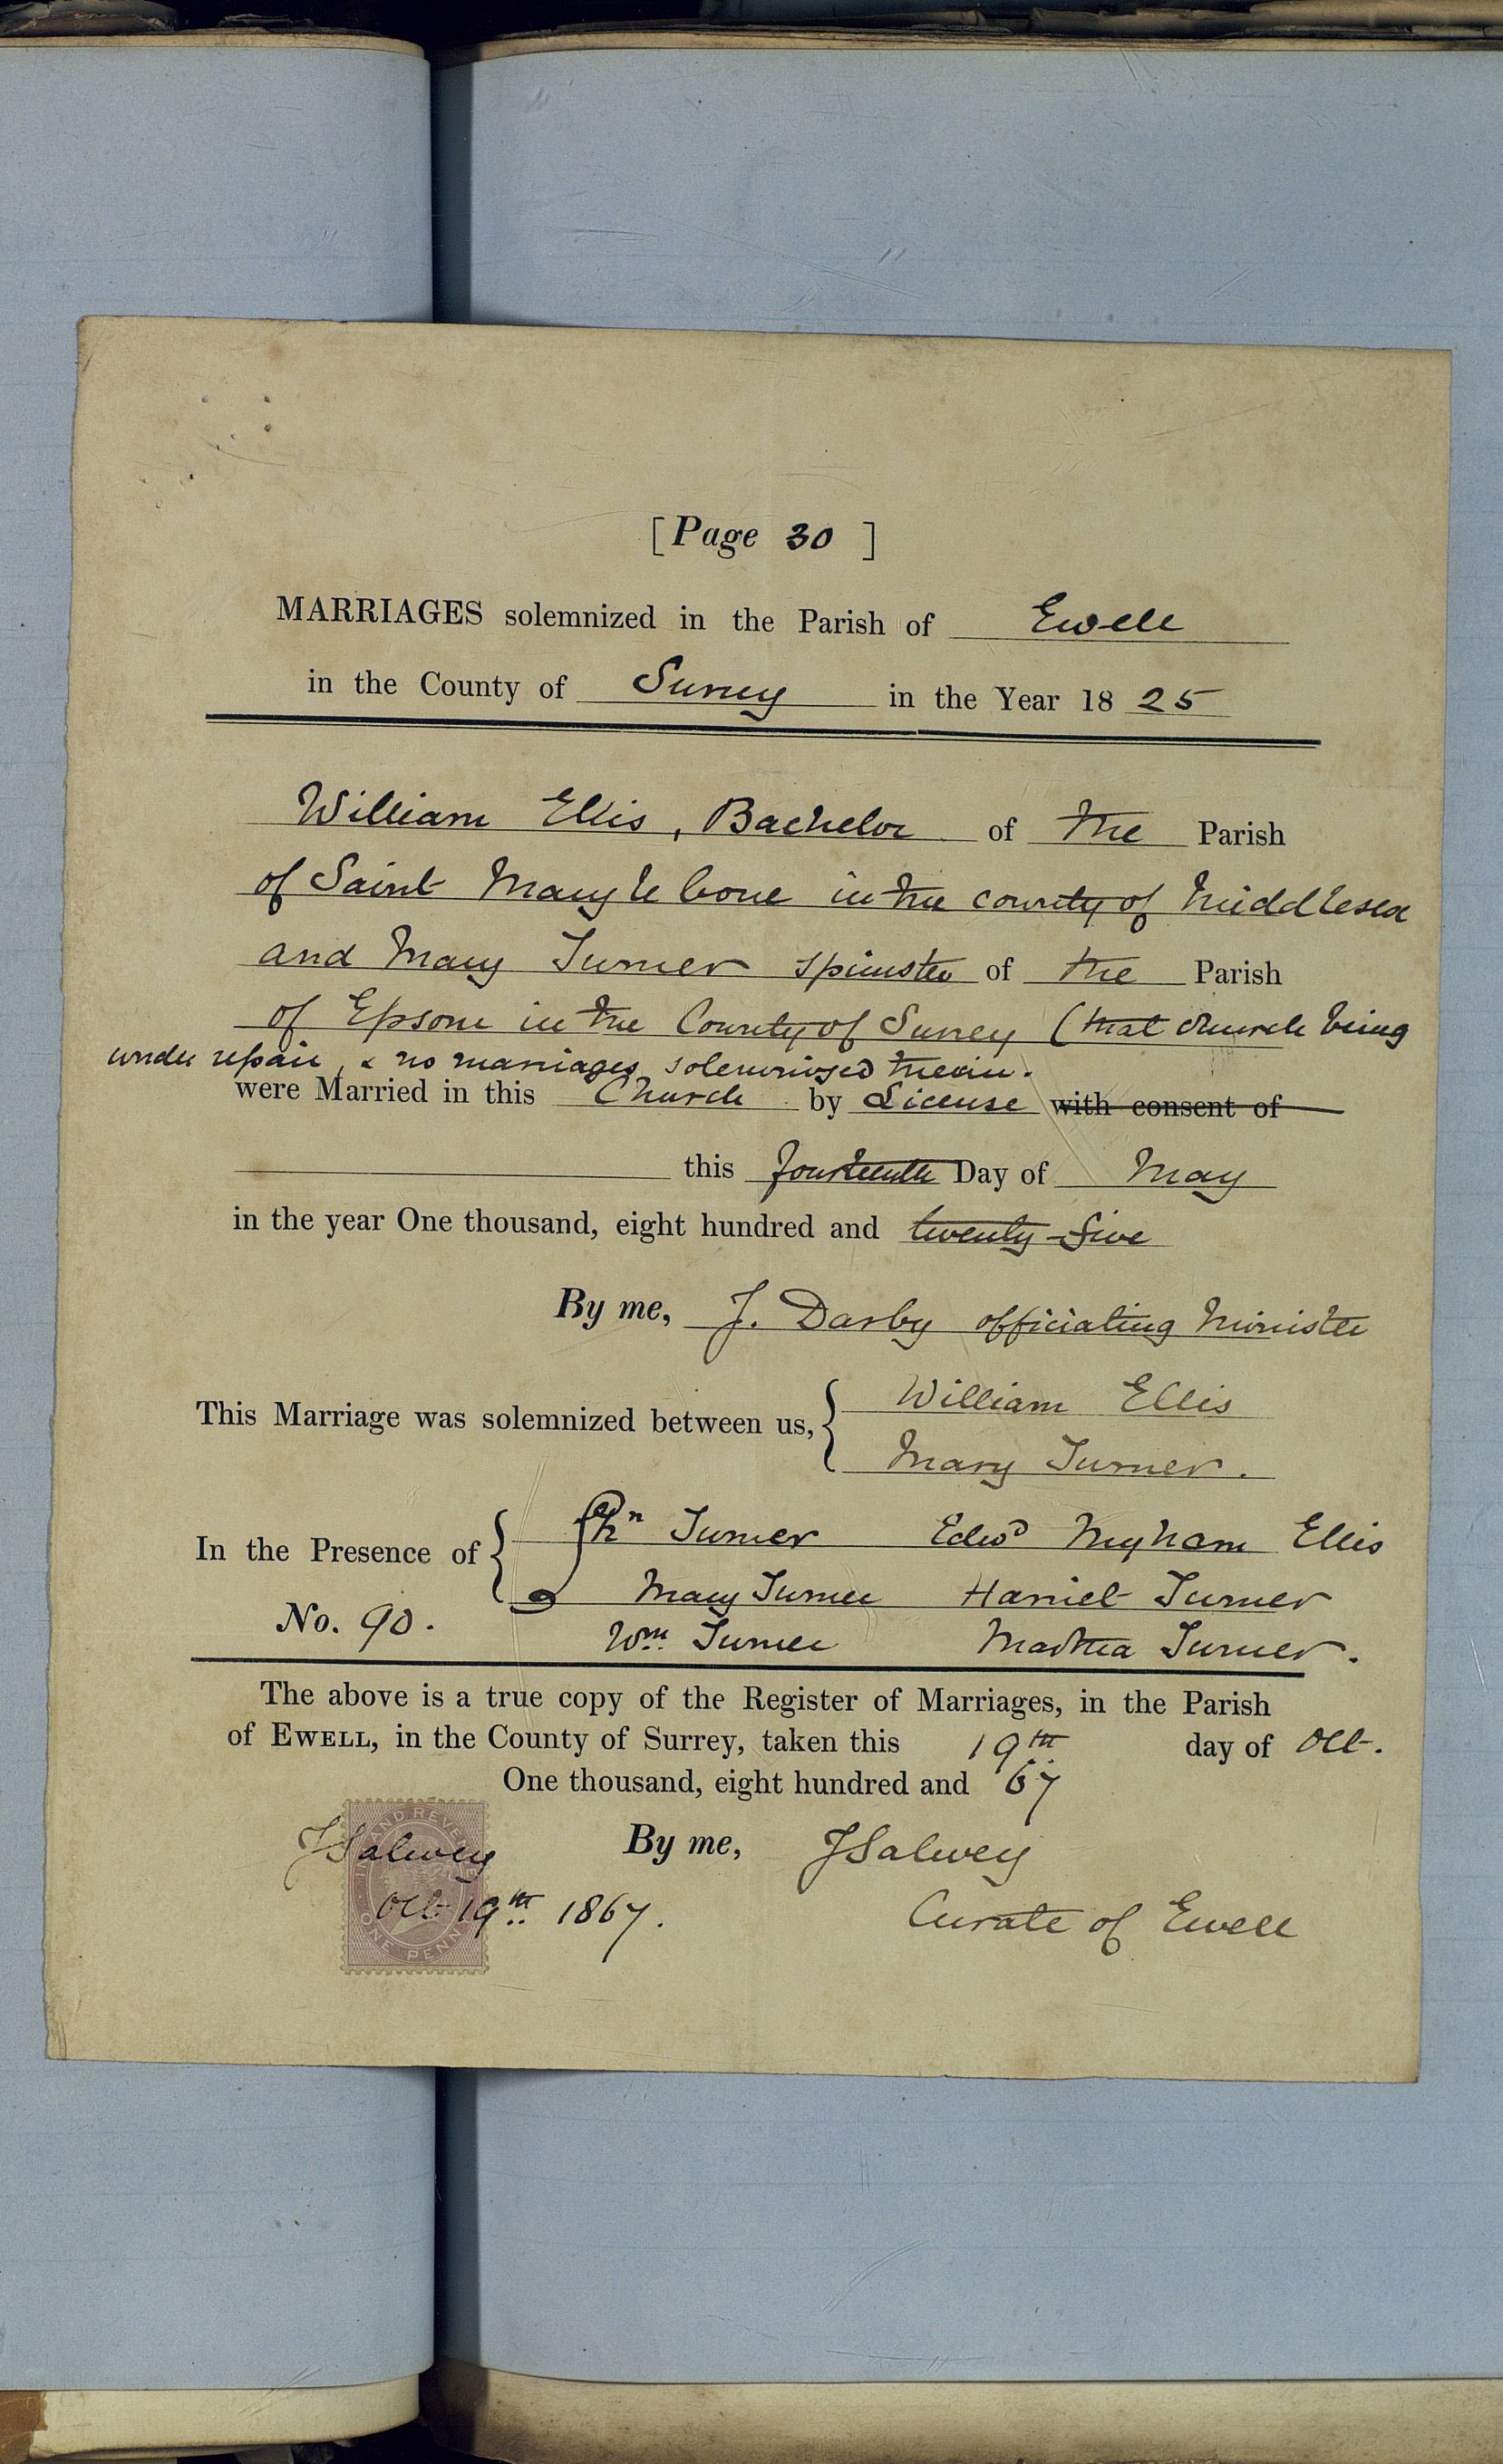 [Page 30 ]
MARRIAGES solemnized in the Parish of Ewell
in the County of Surrey in the Year 18 25
William Ellis, Bachelor of the Parish
of Saint Mary le bone in the county of Middlesex
and Mary Turner spinster of the Parish
of Epsom in the County of Surrey (that church being
under repair, & no marriages solemnised therein.
were Married in this Church by License with consent of
this fourteenth Day of May
in the year One thousand, eight hundred and twenty-five
By me, J. Darby officiating Minister
This Marriage was solemnized between us, { William Ellis
Mary Turner.
In the Presence of { Turner Edwd Ellis
Mary Turner Harriet Turner
No. 90. Wm. Turner Martha Turner.
The above is a true copy of the Register of Marriages, in the Parish
of EWELL, in the County of Surrey, taken this 19th day of Oct.
One thousand, eight hundred and 67
JSalwey By me, JSalwey
Oct 19th 1867. Curate of Ewell
INLAND REVENUE
ONE PENNY